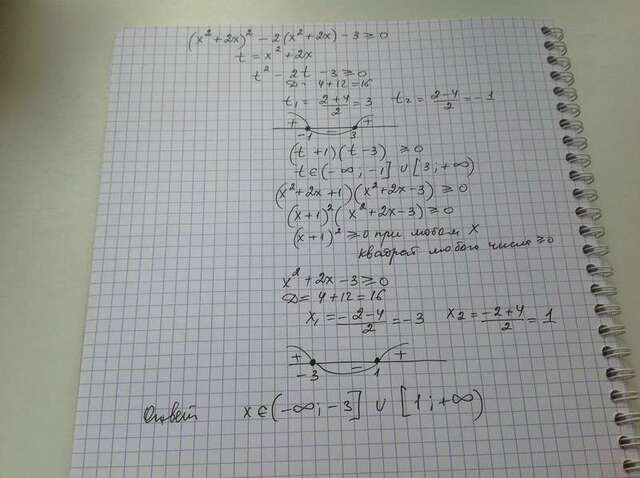 (x² + 2x)² - 2(x² + 2x) - 3 ≥ 0
t = x² + 2x
t² - 2t - 3 ≥ 0
D = 4 + 12 = 16
t₁ = (2+4)/2 = 3 t₂ = (2-4)/2 = -1
+ - +
-1 3
(t + 1)(t - 3) ≥ 0
t ∈ (-∞; -1] ∪ [3; +∞)
(x² + 2x + 1)(x² + 2x - 3) ≥ 0
(x+1)² (x² + 2x - 3) ≥ 0
(x+1)² ≥ 0 при любом x
квадрат любого числа ≥ 0
x² + 2x - 3 ≥ 0
D = 4 + 12 = 16
x₁ = (-2-4)/2 = -3 x₂ = (-2+4)/2 = 1
+ - +
-3 1
Ответ x ∈ (-∞; -3] ∪ [1; +∞)